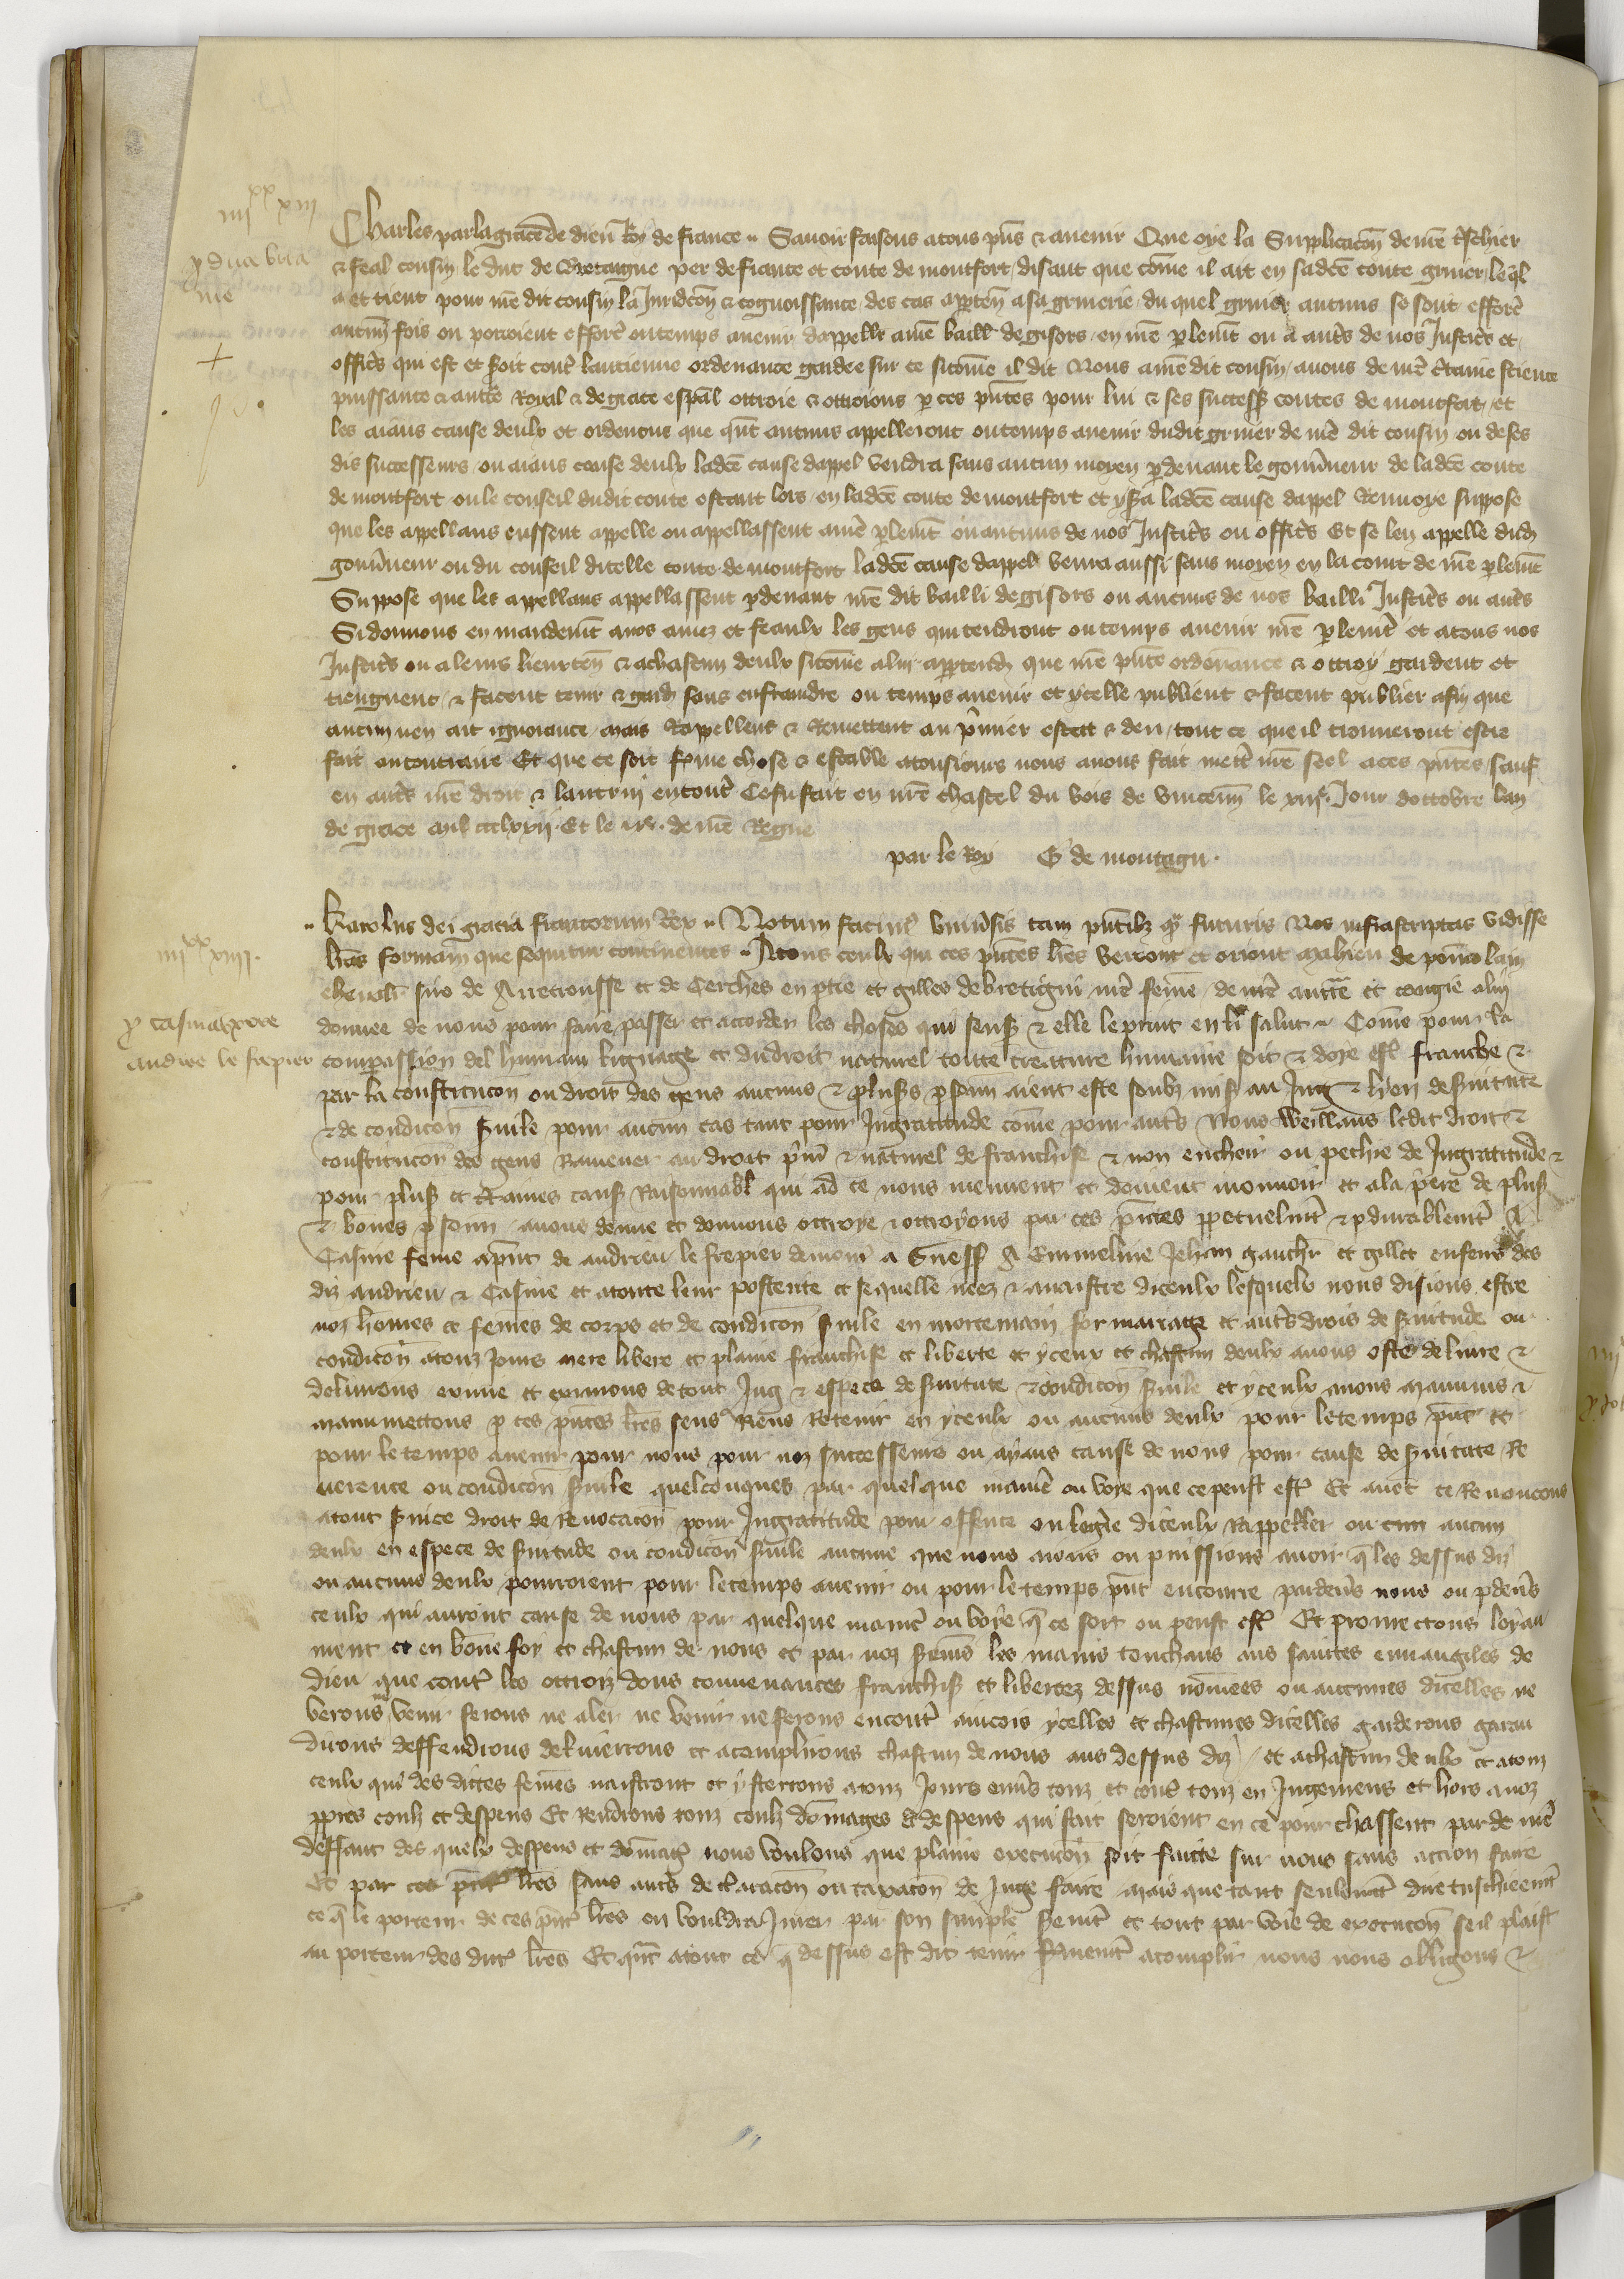 iiiixx xiii
Charles par la grace de dieu Roy de france. Savoir faisons a tous pns̄ & avenir Que oye la Supplicacōn de nr̄e tschier
& feal cousin le duc de Bretaigne per de france et conte de montfort disant que cōme il ait en sa dc̄e conte gruier leql̄
a et tient pour nr̄e dit cousin la Juridcōn & cognoissance des cas apparten̄ a sa gruierie du quel gruier aucuns se sont efforc̄
aucun̄ fois ou porroient efforc̄ ou temps avenir dappeller a nr̄e baill̄ de gisors en nr̄e plem̄t ou a autr̄s de nos Justic̄rs et
offic̄rs qui est et soit contr̄ lancienne ordenance gardee sur ce sicōme il dit Nous a nr̄e dit cousin avons de nr̄e c̄taine science
puissance & auct̄e Royal & de grace esp̄al ottroie & ottroions p ces pn̄tes pour lui & ses success̄ contes de montfort et
les aians cause deulx et ordenons que qn̄t aucuns appelleront ou temps avenir dudit gruier de nr̄e dit cousin ou de ses
dis successeurs ou aians cause deulx ladc̄e cause dappel vendra sans aucun moyen p devant le gouv̄neur de ladc̄e conte
de montfort ou le conseil dudit conte estant lors en ladc̄e conte de montfort et y s̄a ladc̄e cause dappel Renvoye suppose
que les appellans eussent appelle ou appellassent a nr̄e plem̄t ou aucuns de nos Justic̄rs ou offic̄rs Et se len appelle dudi
gouv̄neur ou du conseil dicelle conte de montfort ladc̄e cause dappel venra aussi sans moyen en la court de nr̄e plem̄t
Suppose que les appellans appellassent p devant nr̄e dit bailli de gisors ou aucuns de nos bailli Justic̄rs ou autr̄s
Si donnons en mandem̄t a nos amez et feaulx les gens qui tendront ou temps avenir nr̄e plem̄t et a tous nos
Justic̄rs ou a leurs lieuxten̄ & a chascun deulx sicōme a lui appartendr̄ que nr̄e pn̄te ordenance & ottroy gardent et
tiengnent & facent tenir & gard̄ sans enfraindre ou temps avenir et ycelle publient & facent publier afin que
aucun nen ait ignorance mais Rappellent & Remettent au p̄mier estat & deu tout ce que il trouveront estre
fait au contraire Et que ce soit f̄me chose & estable a tousiours nous avons fait mettr̄ nr̄e seel a ces pn̄tes sauf
en autr̄s nr̄e droit & lautrui en tout̄ Ce fu fait en nr̄e chastel du bois de vincenn̄ le xiiie Jour doctobre lan
de grace mil ccclxxii. Et le ixe. de nr̄e Regne
par le Roy G de montagu.
iiiixx xiiii.
Karolus dei gracia francorum Rex. Notum facim̄ univ̄sis tam pn̄tibz q̄ futuris Nos infrascriptas vidisse
lr̄as formam que sequitur continentes. A tous ceulx qui ces pn̄tes lr̄es verront et orront mahieu de pōmolain
chevalr̄ sire de Arretousse et de Cerches en ptie et gilles de bretigni nr̄e fēme de nr̄e auct̄e et congie a lui
p casma uxore
andree le frepier
donnee de nous pour faire passer et accorder les choses qui sens̄ & elle le print en li salut. Cōme pour la
compassion del humain lignage et du droit naturel toute creature humaine soit & doye est̄ franche &
par la constitucōn ou droit des gens aucuns & pluss̄ psonn̄ aient este soubz mis au Jug & lien de s̄vitute
& de condicōn s̄vile pour aucun cas tant pour Jngratitude cōme pour autr̄s Nous weillans ledit droit &
constitucōn des gens Ramener au droit p̄mi & naturel de franchise & non encheir ou pechie de Jngratitude &
pour pluss̄ et c̄taines caus̄ Raisonnabl̄ qui ad ce nous meuvent et doivent mouvoir et a la p̄iere de pluss̄
& bōnes psonn̄ avons donne et donnons ottroye & ottroyons par ces pn̄tes ppetuelm̄t & pdurablem̄t A
Casine fēme a pn̄t de andrieu le frepier demour̄ a Guess̄ A Emmeline Jehan gauchr̄ et gillet enfens des
diz andrieu & Casine et a toute leur posterite et sequelle neez & a naistre diceulx lesquelx nous disions estre
noz hōmes et fēmes de corps et de condicōn s̄vile en mortemain formariage et autr̄s drois de s̄vitude ou
condicōn a touz jours mere libere et plaine franchise et liberte et yceux et chascun deulx avons oste delivre &
delivrons exime et eximons de tout Jug & espece de s̄vitute & condicōn s̄vile et yceulx avons manumis &
manumettons p ces pn̄tes lr̄es sens Riens Retenir en yceulx ou aucuns deulx pour le temps pn̄t et
pour le temps avenir pour nous pour noz successeurs ou ayans cause de nous pour cause de s̄vitute Re
verence ou condicōn s̄vile quelconques par quelque manr̄e ou voye que ce peust est̄ Et avec̄ ce Renoncons
a tout s̄vice droit de Revocacōn pour Jngratitude pour offence ou legr̄e diceulx Rappeller ou cun aucun
deulx en espece de s̄vitude ou condicōn s̄vile aucune que nous aions ou puissions avoir q̄ les dessus diz
ou aucuns deulx pourroient pour le temps avenir ou pour le temps pn̄t encourre par dev̄s nous ou p dev̄s
ceulx qui auront cause de nous par quelque manr̄e ou voye q̄ ce soit ou peust est̄ Et promectons loyau
ment et en bōne foy et chascun de nous et par noz s̄ems les mains touchans aus saintes euvangiles de
dieu que contr̄ les ottroiz dons convenances franchis̄ et libertez dessus nōmees ou aucunes dicelles ne
verons venir ferons ne aler ne venir ne ferons encontr̄ aincois ycelles et chascunes dicelles garderons garan
dirons deffendrons deliverrons et acomplirons chascun de nous aus dessus diz et a chascun deulx et a touz
ceulx qui des dictes fēmes naistront et ysterrons a touz Jours env̄s touz et contr̄ touz en Jugemens et hors a noz
ppres coulz et despens Et Rendrons touz coulz dōmages & despens qui fait seroient en ce pour chassent par de nr̄e
deffaut des quelx despens et dōmaḡ nous voulons que plaine execucōn soit faicte sur nous sans action faire
Et par ces pn̄t̄ lr̄es sans autr̄ declaracōn ou taxacōn de Juge faire mais que tant seulem̄t
ce q̄ le porteur de ces pn̄t̄ lr̄es en vouldra Jurer par son simple s̄em̄t et tout par voie de execucōn se il plaist
au porteur des dict̄ lr̄es Et qn̄t a tout ce q̄ dessus est dit tenir f̄mem̄t acomplir nous nous obligons &